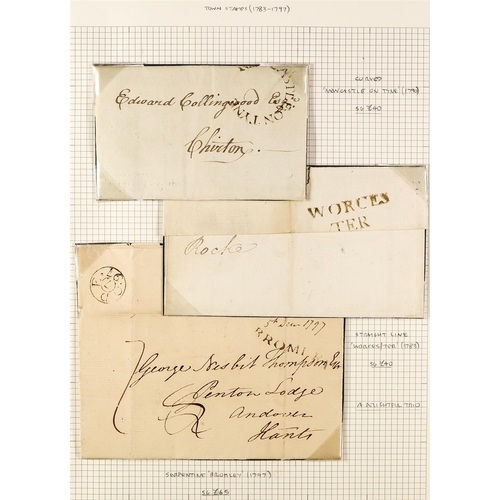 TOWN STAMPS (1783-1797)
Edward Collingwood Esq
Chirton.
CURVED
'NEWCASTLE ON TYNE' (1790)
SG £40
WORCES
TER
Rocke
5th Decr 1797
BROML
George Nesbit Thompson Esqr
Penton Lodge
Andover
Hants
STRAIGHT LINE
'WORCES/TER' (1787)
SG £40
A DELIGHTFUL TRIO
SERPENTINE 'BROMLEY' (1797)
SG £65